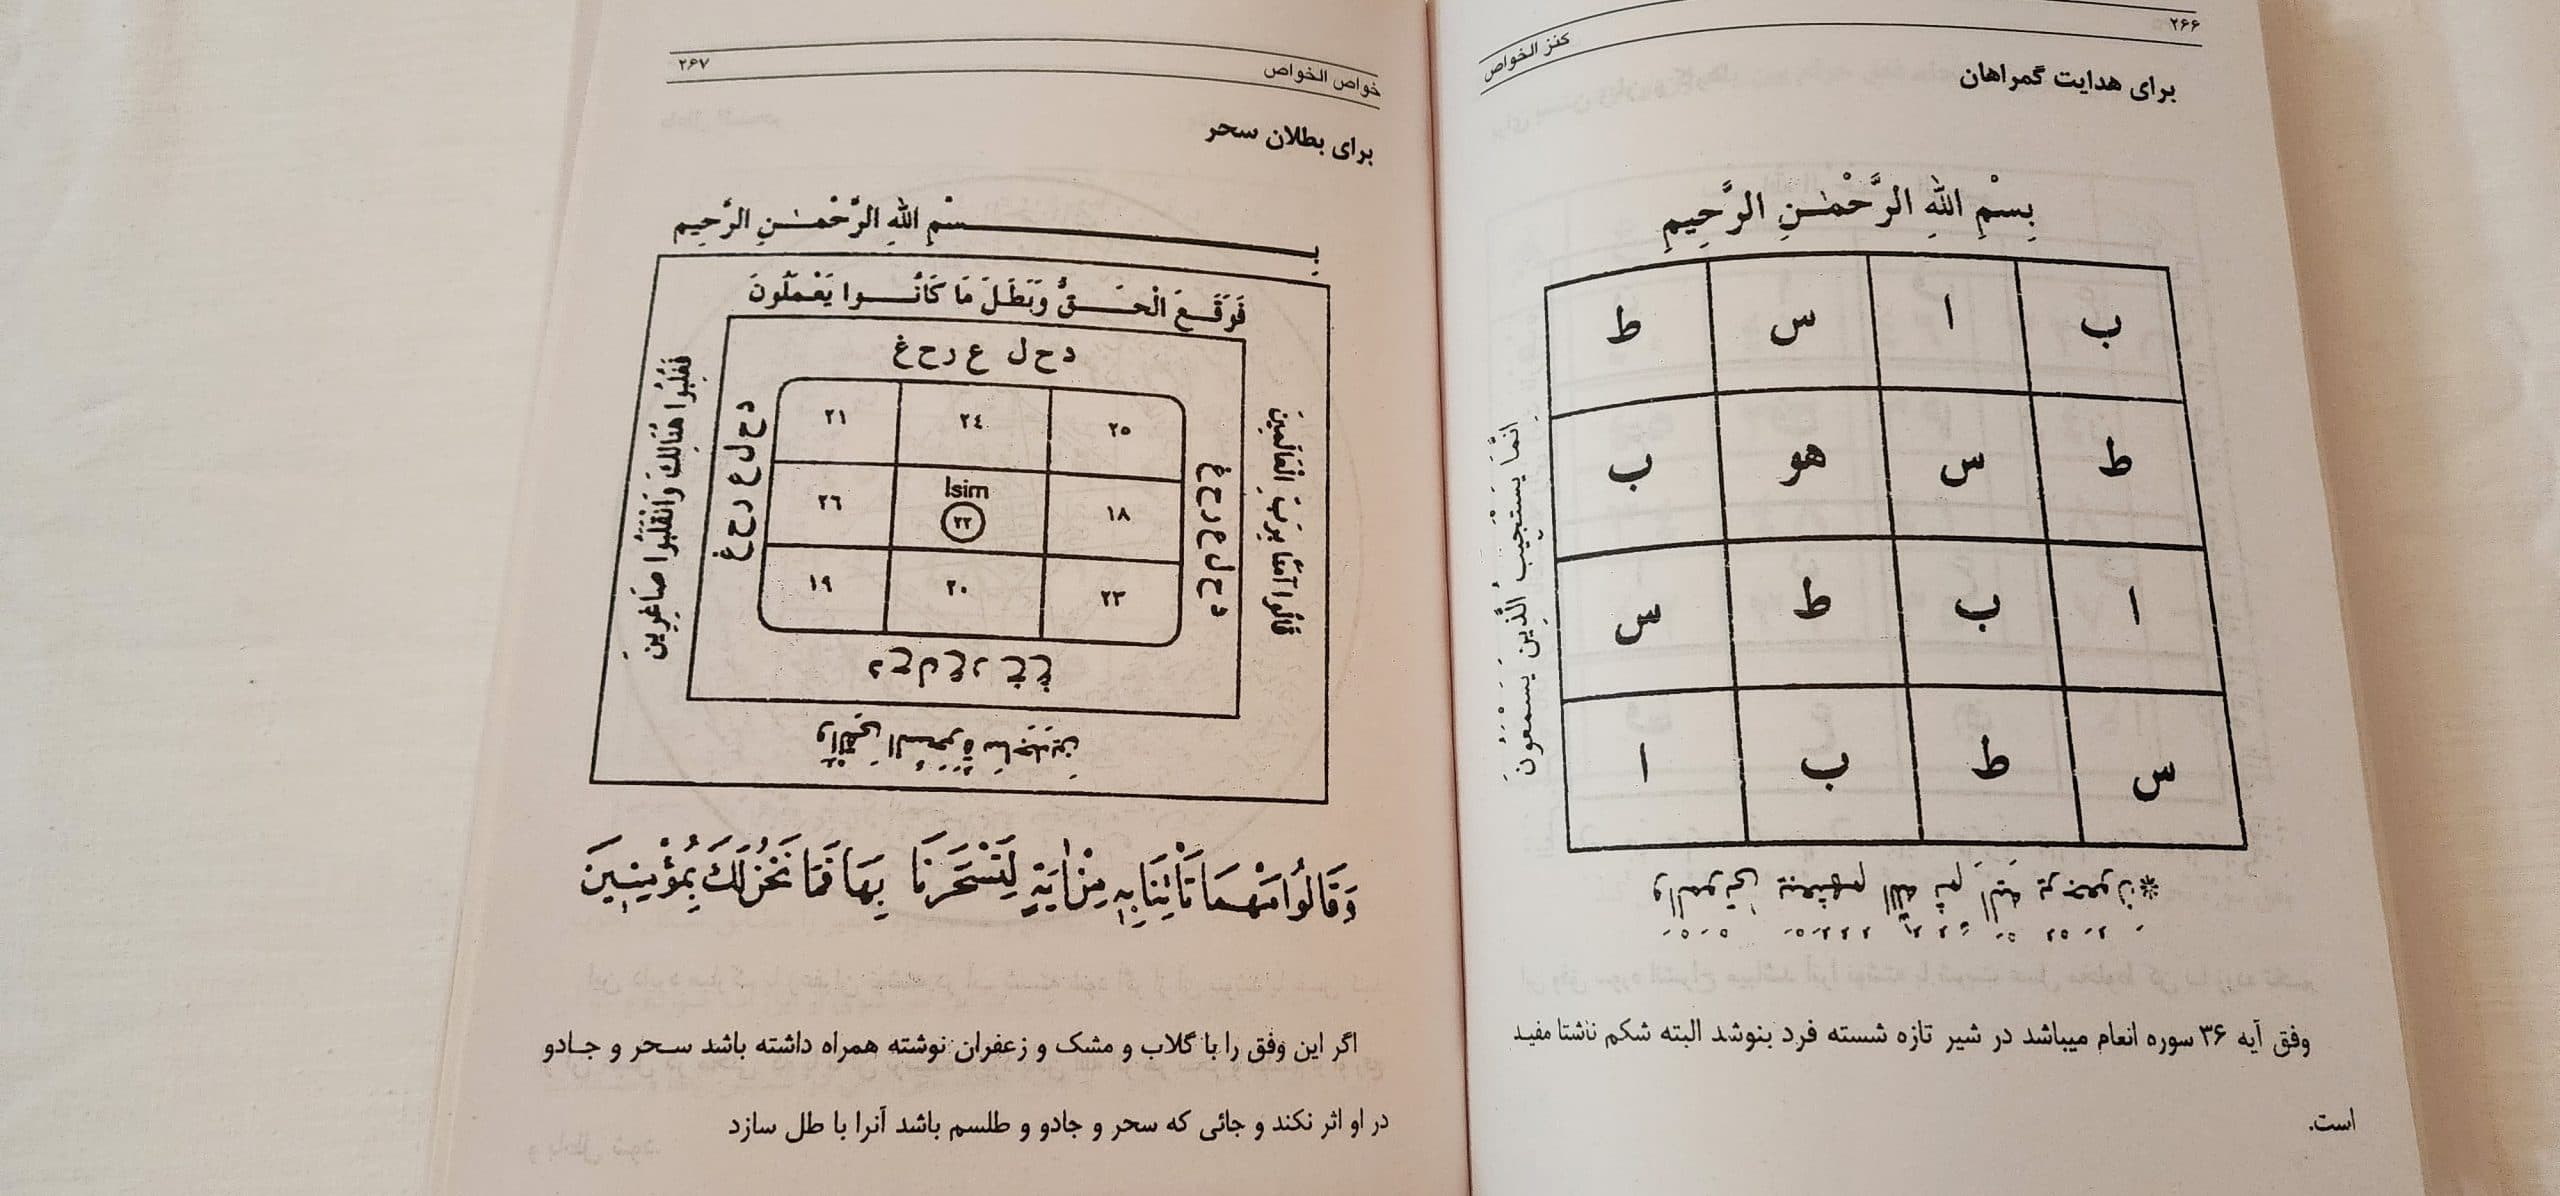 ۲۶۶
کنز الخواص
برای هدایت گمراهان
بِسْمِ اللهِ الرَّحْمٰنِ الرَّحِيمِ
ب ا س ط
ط س هو ب
ا ب ط س
س ط ب ا
اِنَّمَا يَسْتَجِيبُ الَّذِينَ يَسْمَعُونَ
وَالْمَوْتىٰ يَبْعَثُهُمُ اللهُ ثُمَّ اِلَيْهِ يُرْجَعُونَ*
وفق آیه ۳۶ سوره انعام میباشد در شیر تازه شسته فرد بنوشد البته شکم ناشتا مفید
است.
خواص الخواص
۲۶۷
برای بطلان سحر
بِسْمِ اللهِ الرَّحْمٰنِ الرَّحِيم
فَوَقَعَ الْحَقُّ وَبَطَلَ مَا كَانُوا يَعْمَلُونَ
فَغُلِبُوا هُنَالِكَ وَانْقَلَبُوا صَاغِرِينَ
وَاُلْقِىَ السَّحَرَةُ سَاجِدِينَ
قَالُوا آمَنَّا بِرَبِّ الْعَالَمِينَ
د ح ل ع ر ح غ
د ح ل ع د ح غ
د ح ل ع ر ح غ
د ح ل ع ر ح غ
٢١ ٢٤ ٢٥
٢٦ Isim ٢٢ ١٨
١٩ ٢٠ ٢٣
وَقَالُوا مَهْمَا تَأْتِنَا بِهِ مِنْ اٰيَةٍ لِتَسْحَرَنَا بِهَا فَمَا نَحْنُ لَكَ بِمُؤْمِنِينَ
اگر این وفق را با گلاب و مشک و زعفران نوشته همراه داشته باشد سحر و جادو
در او اثر نکند و جائی که سحر و جادو و طلسم باشد آنرا با طل سازد